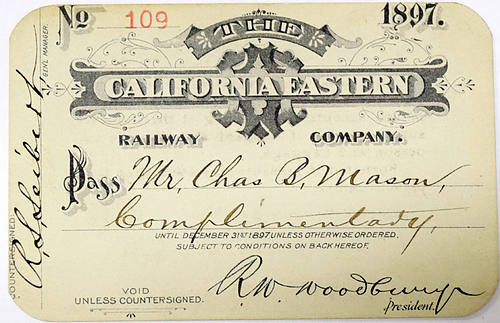 No 109 1897.
THE
CALIFORNIA EASTERN
RAILWAY COMPANY.
Pass Mr. Chas B. Mason,
Complimentady,
UNTIL DECEMBER 31ST 1897 UNLESS OTHERWISE ORDERED.
SUBJECT TO CONDITIONS ON BACK HEREOF.
VOID
UNLESS COUNTERSIGNED.
R.W. Woodbury
President.
COUNTERSIGNED: R.S. Seibert
GEN'L MANAGER.